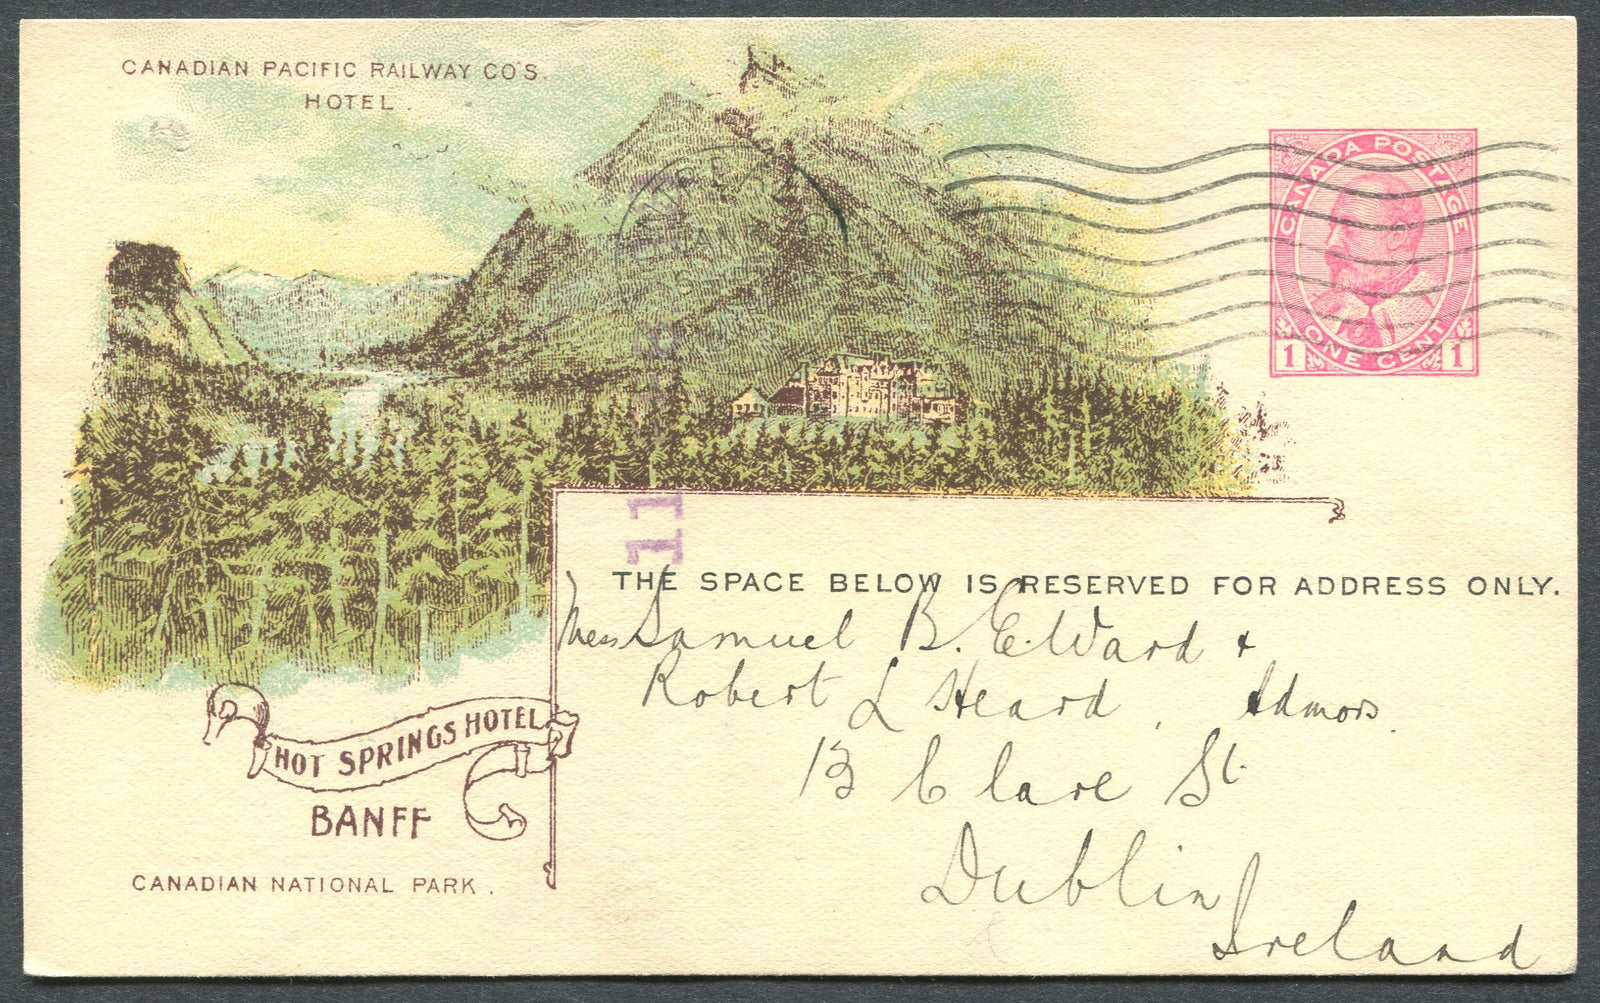 CANADIAN PACIFIC RAILWAY CO'S.
HOTEL.
CANADA POSTAGE
ONE CENT
1 1
JAN
11
THE SPACE BELOW IS RESERVED FOR ADDRESS ONLY.
Mess Samuel B. E. Ward +
Robert L Heard, Admors.
13 Clare St.
Dublin
Ireland
HOT SPRINGS HOTEL
BANFF
CANADIAN NATIONAL PARK.